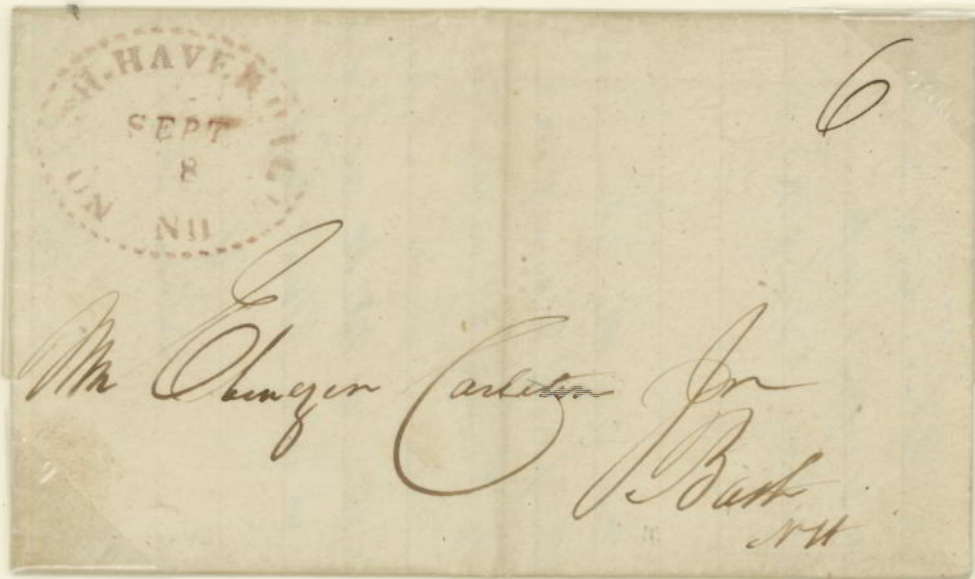 NORTH.HAVERHILL
SEPT
8
NH
6
Mr Ebenezer Carleton Jr
Bath
NH